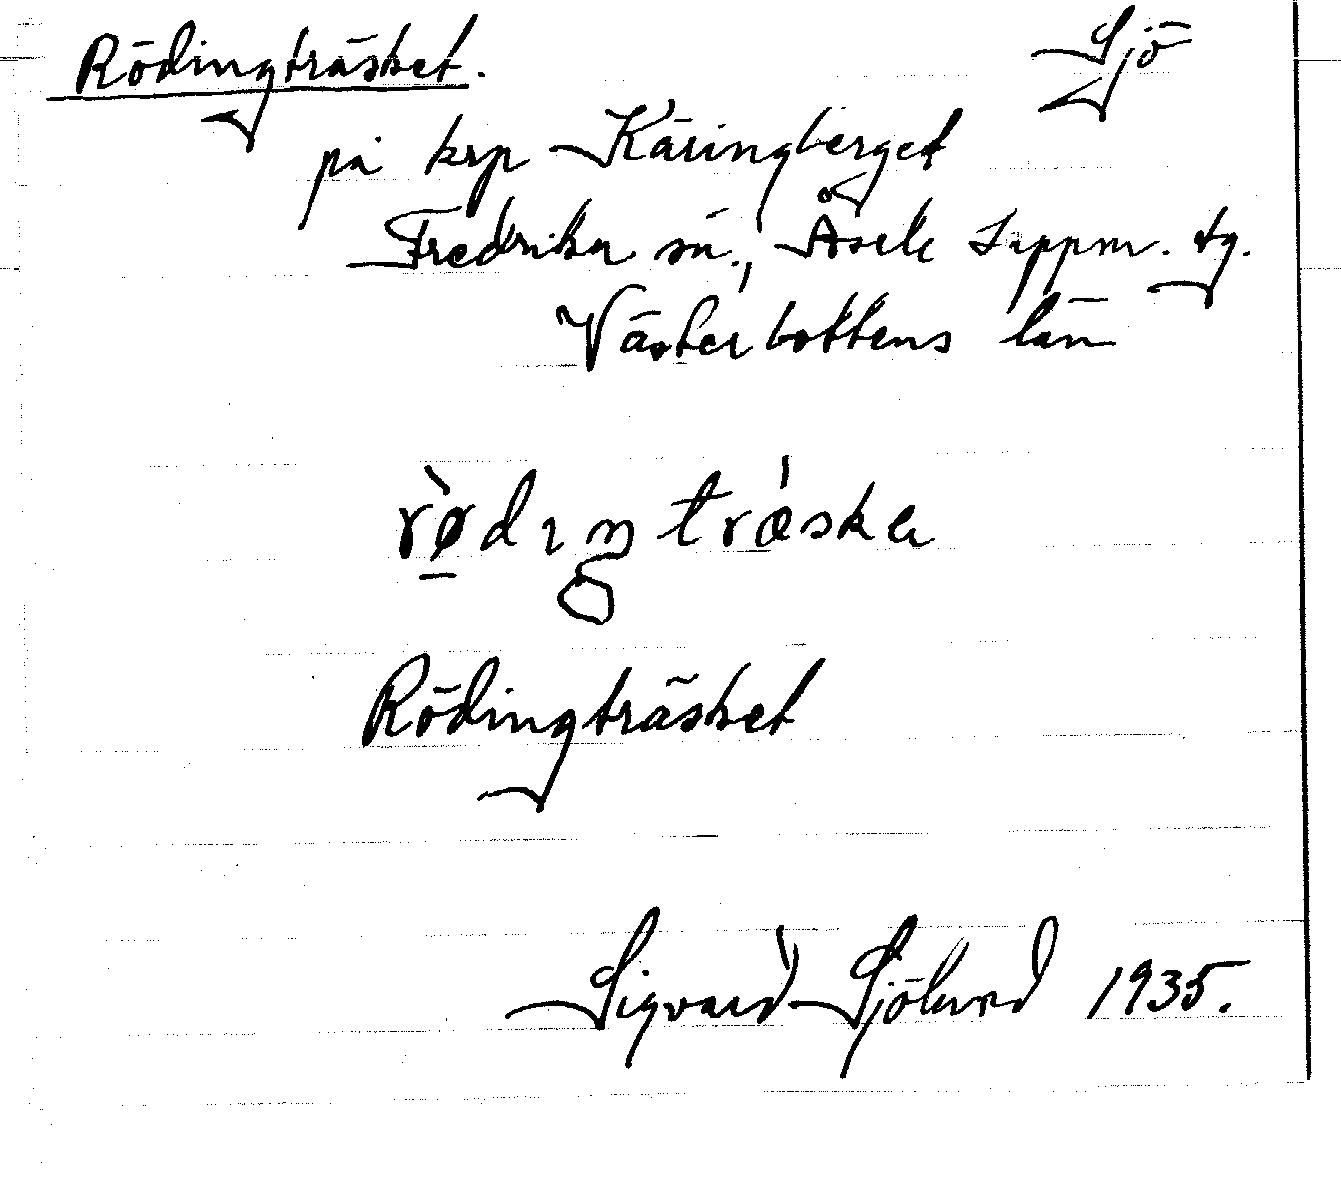 Rödingträsket. Sjö
på krp Käringberget
Fredrika sn., Åsele Lappm. tg.
Västerbottens län
rø̀dıŋtrǽska
Rödingträsket
Sigvard Sjölund 1935.